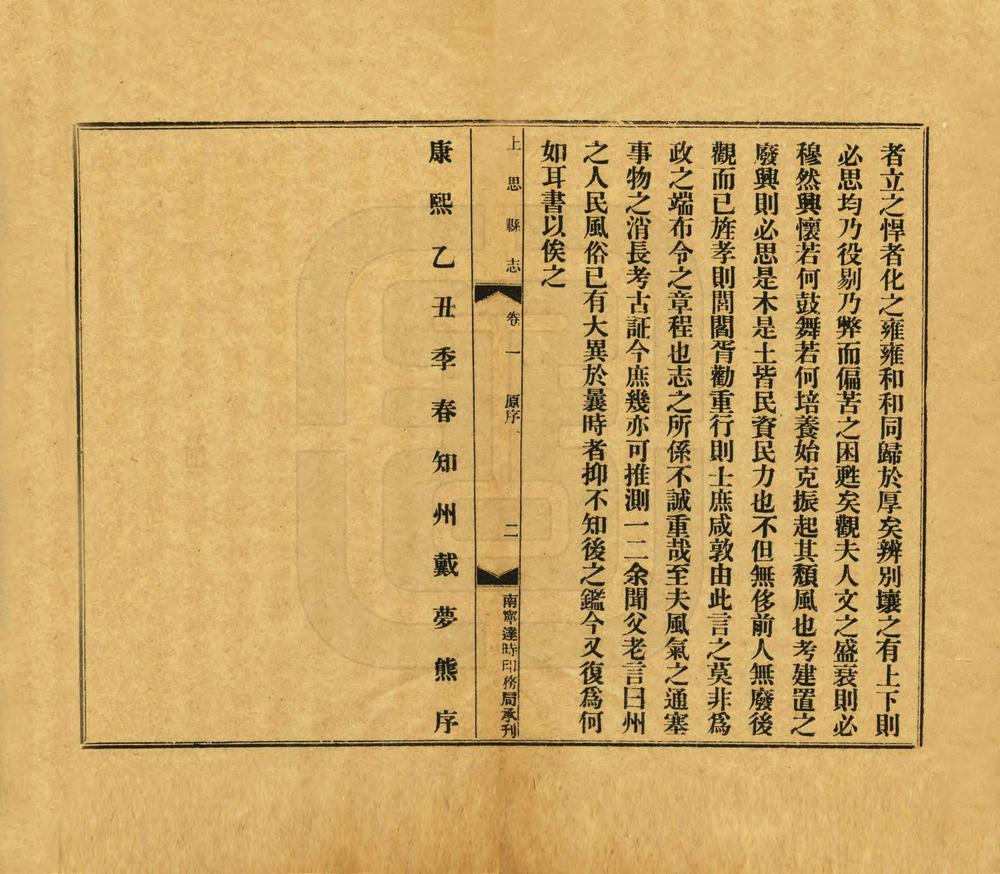 者立之悍者化之雍雍和和同歸於厚矣辨別壤之有上下則
必思均乃役剔乃弊而偏苦之困甦矣觀夫人文之盛衰則必
穆然興懷若何鼓舞若何培養始克振起其頹風也考建置之
廢興則必思是木是土皆民資民力也不但無侈前人無廢後
觀而已旌孝則閭閻胥勸重行則士庶咸敦由此言之莫非爲
政之端布令之章程也志之所係不誠重哉至夫風氣之通塞
事物之消長考古証今庶幾亦可推測一二余聞父老言曰州
之人民風俗已有大異於曩時者抑不知後之鑑今又復爲何
如耳書以俟之
上思縣志
卷一 原序
二
南寧達時印務局承刊
康熙乙丑季春知州戴夢熊序